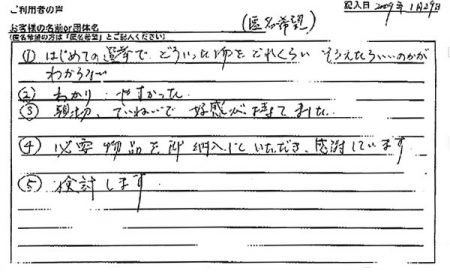 ご利用者の声
記入日 2009年 1月29日
お客様の名前or団体名
(匿名希望の方は「匿名希望」とご記入ください)
(匿名希望)
① はじめての選挙で どういった物を どれくらい そろえたらいいのかが
わからない
② わかり やすかった
③ 親切、ていねいで 好感が 持てました
④ 必要物品を即納入していただき、感謝しています
⑤ 検討します